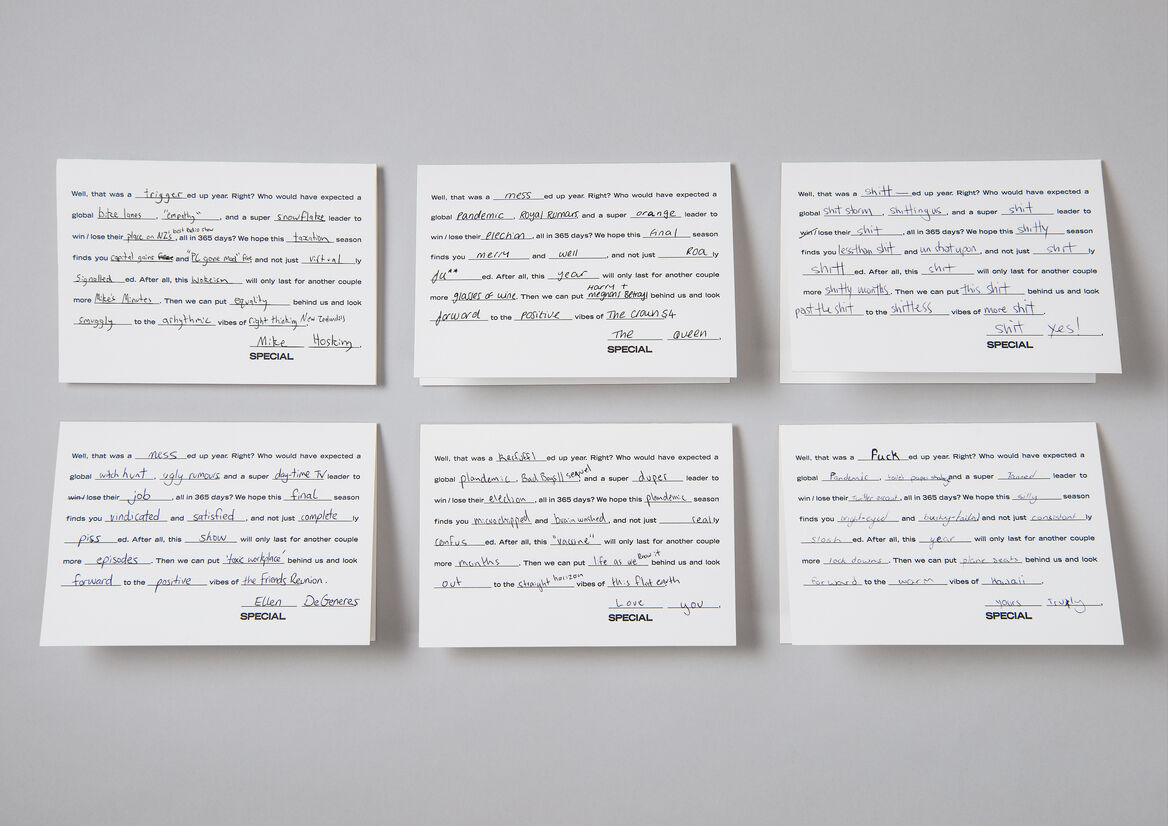 Well, that was a trigger ed up year. Right? Who would have expected a
global bike lanes, "empathy", and a super snowflake leader to
win / lose their place on NZ's best radio show, all in 365 days? We hope this taxation season
finds you capital gains and "PC gone mad" and not just virtual ly
signalled ed. After all, this wokeism will only last for another couple
more Mike's Minutes. Then we can put equality behind us and look
smuggly to the arhythmic vibes of right thinking New Zealanders
Mike Hosking.
SPECIAL
Well, that was a mess ed up year. Right? Who would have expected a
global pandemic, Royal Rumors and a super orange leader to
win / lose their election, all in 365 days? We hope this final season
finds you merry and well, and not just Roa ly
fu** ed. After all, this year will only last for another couple
more glasses of wine. Then we can put Harry + megnans Betrayl behind us and look
forward to the positive vibes of The Crown S4
The Queen.
SPECIAL
Well, that was a shitt ed up year. Right? Who would have expected a
global shit storm, shitting us, and a super shit leader to
win / lose their shit, all in 365 days? We hope this shitly season
finds you less than shit and un shat upon, and not just shit ly
shitt ed. After all, this shit will only last for another couple
more shitty months. Then we can put this shit behind us and look
past the shit to the shitless vibes of more shit.
shit yes!
SPECIAL
Well, that was a mess ed up year. Right? Who would have expected a
global witch hunt, ugly rumours and a super day-time TV leader to
win / lose their job, all in 365 days? We hope this final season
finds you vindicated and satisfied, and not just complete ly
piss ed. After all, this show will only last for another couple
more episodes. Then we can put 'toxic workplace' behind us and look
forward to the positive vibes of the Friends Reunion.
Ellen DeGeneres
SPECIAL
Well, that was a Kerfuffl ed up year. Right? Who would have expected a
global plandemic, Bad Boys II sequel and a super duper leader to
win / lose their election, all in 365 days? We hope this plandemic season
finds you microchipped and brain washed, and not just really
confus ed. After all, this "vaccine" will only last for another couple
more months. Then we can put life as we know it behind us and look
out to the straight horizon vibes of this flat earth
Love you.
SPECIAL
Well, that was a Fuck ed up year. Right? Who would have expected a
global Pandemic, toilet paper and a super Tanned leader to
win / lose their Twitter account, all in 365 days? We hope this silly season
finds you bright-eyed and bushy-tailed and not just consistant ly
slosh ed. After all, this year will only last for another couple
more lock downs. Then we can put plane seats behind us and look
forward to the warm vibes of Hawaii.
yours Truly.
SPECIAL